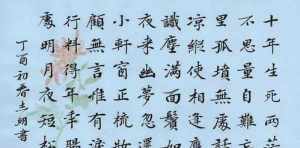 十年生死兩茫
不思量自難忘
里孤墳無處話
凉縱使相逢應
識塵滿面鬢如
夜來幽夢忽還
小軒窗正梳妝
顧無言惟有淚
行料得年年腸
處明月夜短松
丁酉初春志明書